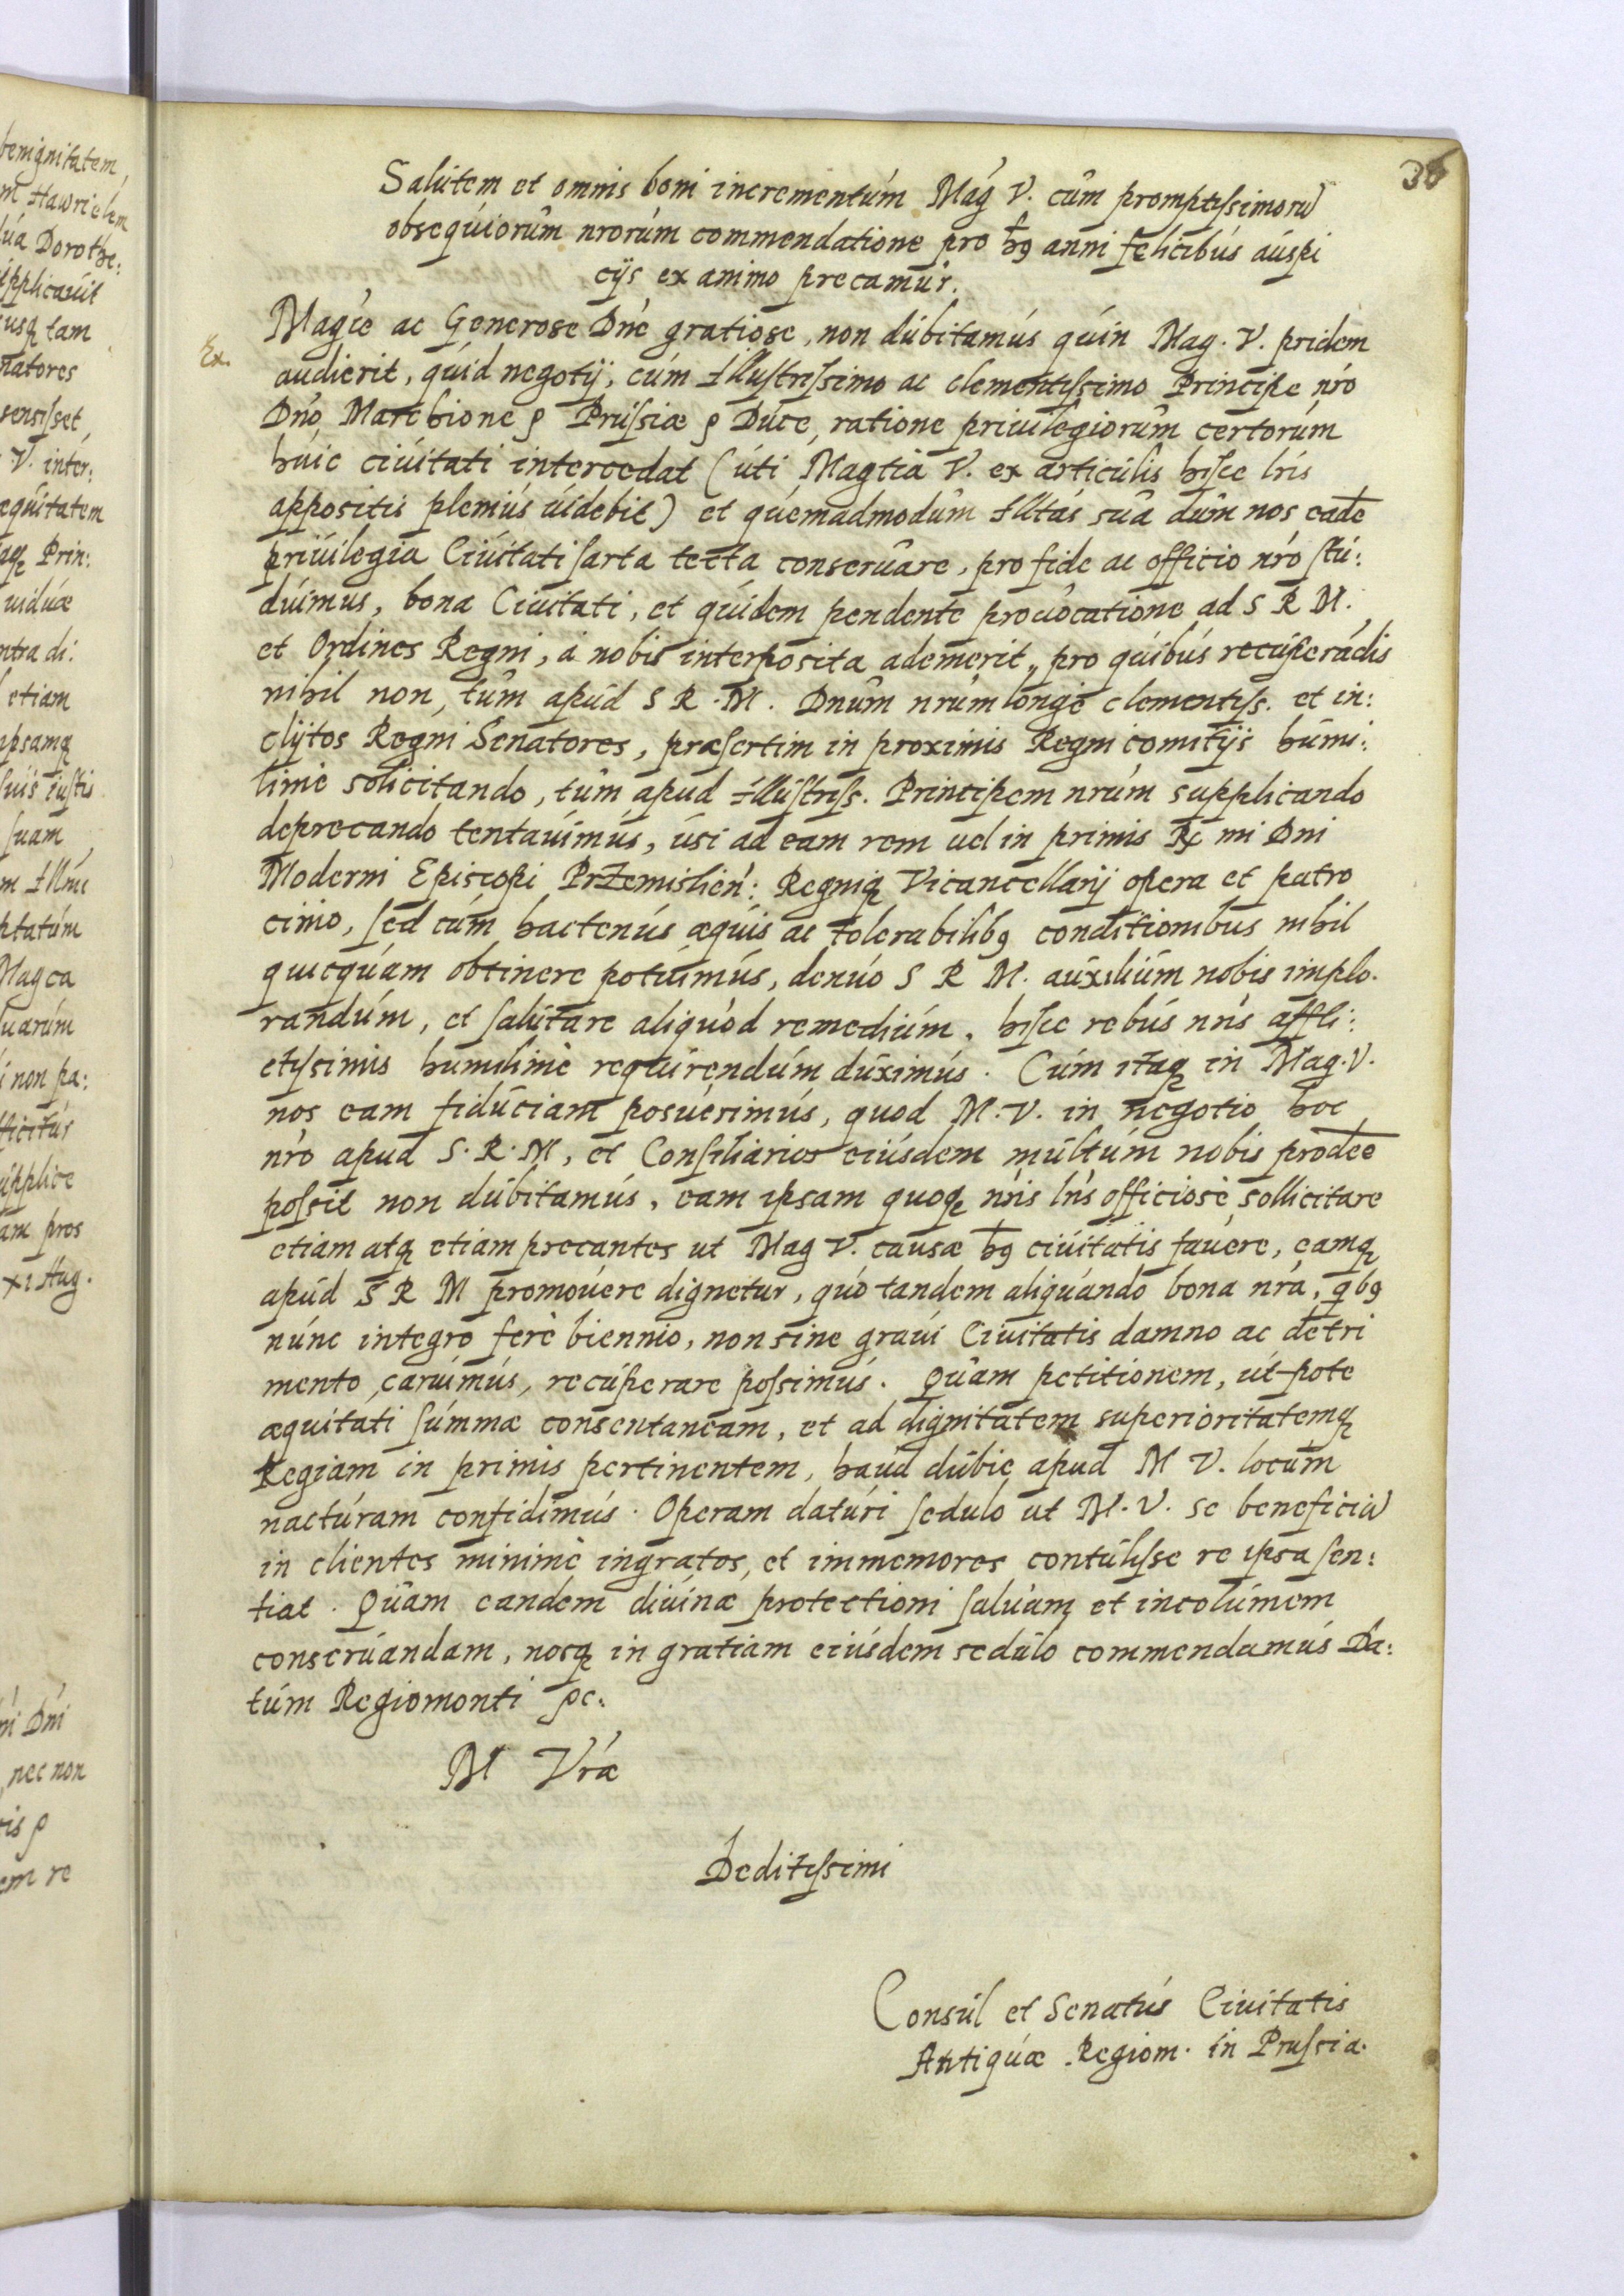 38
Salutem et omnis boni incrementum Mag V. cum promptissimorũ
obsequiorum nrorum commendatione pro h9 anni felicibus auspi
cijs ex animo precamur.
Ex.
Magce ac Generose Dne gratiose, non dubitamus quin Mag. V. pridem
audierit, quid negotij, cum Illustrissimo ac clementissimo Principe nro
Dno Marchione ꝛ Prussiæ ꝛ Duce, ratione priuilegiorum certorum
huic ciuitati intercedat (uti Magtia V. ex articulis hisce lris
appositis plenius uidebit) et quemadmodum Illtas sua dum nos eadē
priuilegia Ciuitati sarta tecta conseruare, pro fide ac officio nro stu:
duimus, bona Ciuitati, et quidem pendente prouocatione ad S R M.
et Ordines Regni, a nobis interposita ademerit, pro quibus recuperādis
nihil non, tum apud S R. M. Dnum nrum longe clementiss. et in:
clytos Regni Senatores, præsertim in proximis Regni comitijs humi:
lime solicitando, tum apud Illustriss. Principem nrum supplicando
deprecando tentauimus, usi ad eam rem uel in primis R mi Dni
Moderni Episcopi Przemislien: Regniq Vicancellarij opera et patro
cinio, sed cum hactenus æquis ac tolerabilib9 conditionibus nihil
quicquam obtinere potuimus, denuo S R M. auxilium nobis implo.
randum, et salutare aliquod remedium, hisce rebus nris affli:
ctissimis humilime requirendum duximus. Cum itaq in Mag. V.
nos eam fiduciam posuerimus, quod M. V. in negotio hoc
nro apud S. R. M, et Consiliarios eiusdem multum nobis prodēē
possit non dubitamus, eam ipsam quoq nris lris officiose sollicitare
etiam atq etiam precantes ut Mag V. causæ h9 ciuitatis fauere, eamq
apud S R M promouere dignetur, quo tandem aliquando bona nra, qb9
nunc integro fere biennio, non sine graui Ciuitatis damno ac detri
mento caruimus, recuperare possimus. Quam petitionem, ut pote
æquitati summæ consentaneam, et ad dignitatem superioritatemq
Regiam in primis pertinentem, haud dubie apud M V. locum
nacturam confidimus. Operam daturi sedulo ut M. V. se beneficiũ
in clientes minime ingratos, et immemores contulisse re ipsa sen:
tiat. Quam eandem diuinæ protectioni saluam et incolumem
conseruandam, nosq in gratiam eiusdem sedulo commendamus Da:
tum Regiomonti ꝛc.
M Vræ
Deditissimi
Consul et Senatus Ciuitatis
Antiquæ Regiom. in Prussia.
benignitatem,
m Hawrielem
Dorothe:
tam
natores
sensisset
V. inter:
æquitatem
Prin:
uiduæ
ntra di:
etiam
ipsamq
suis iustis
suam
m Illmi
ptatum
Magca
uarum
i non pa:
pros
xi Aug.
ni Dni
nec non
em re